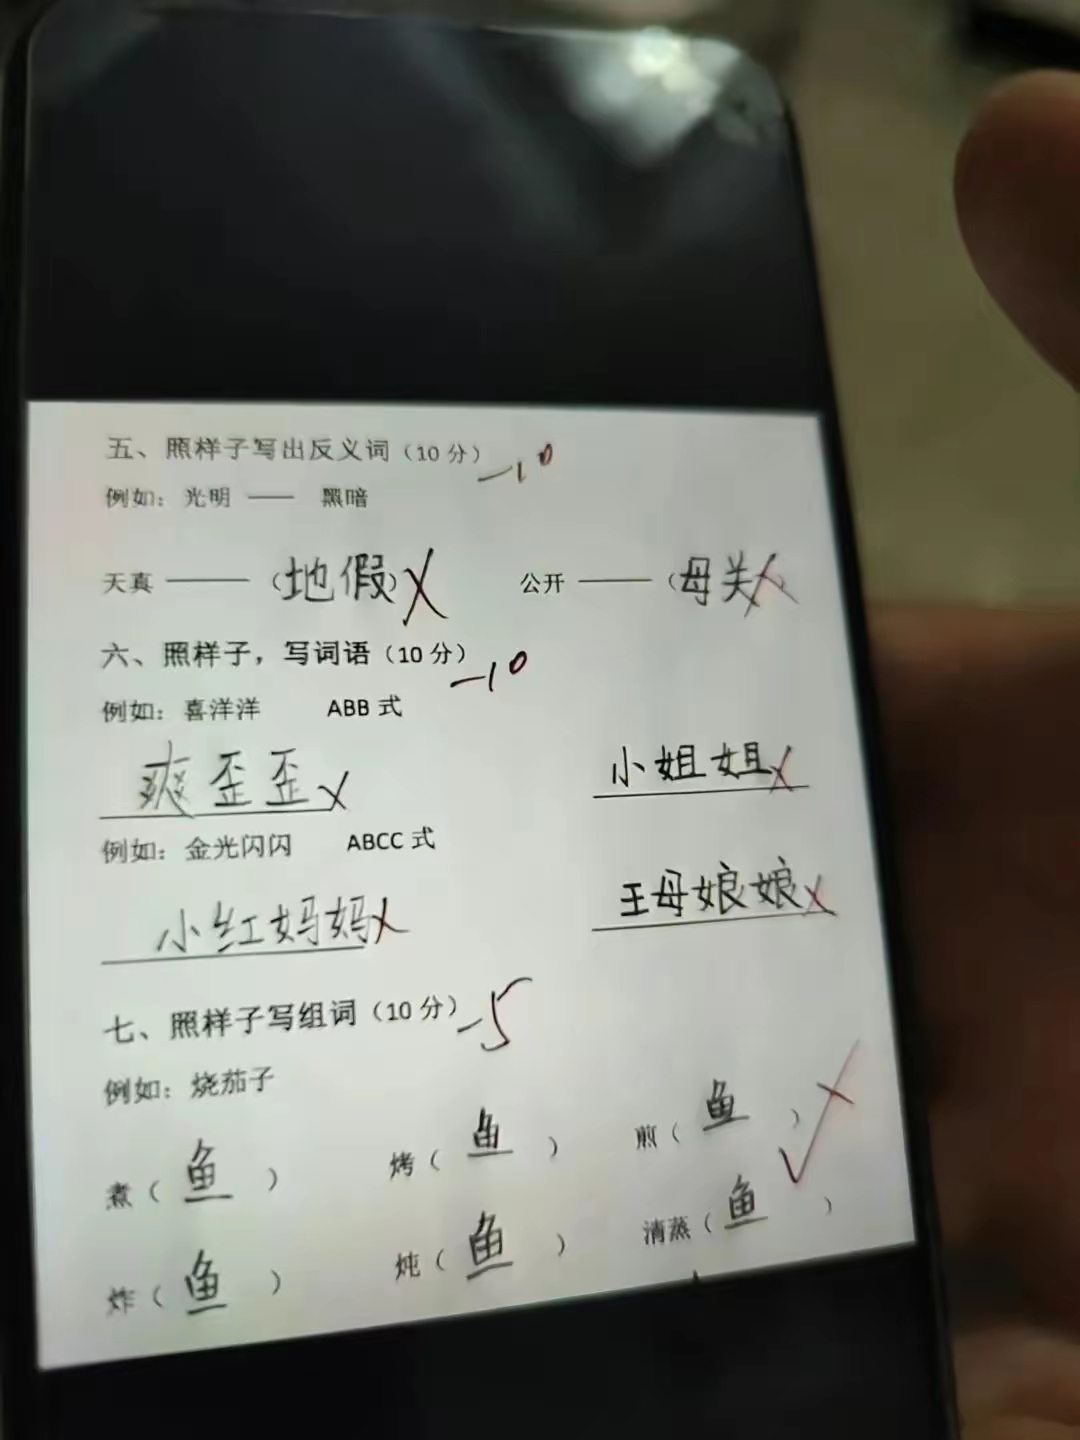 五、照样子写出反义词（10 分） -10
例如：光明 —— 黑暗
天真 ——（地假） 公开 ——（母关）
六、照样子，写词语（10 分） -10
例如：喜洋洋 ABB 式
爽歪歪 小姐姐
例如：金光闪闪 ABCC 式
小红妈妈 王母娘娘
七、照样子写组词（10 分） -5
例如：烧茄子
煮（鱼） 烤（鱼） 煎（鱼）
炸（鱼） 炖（鱼） 清蒸（鱼）